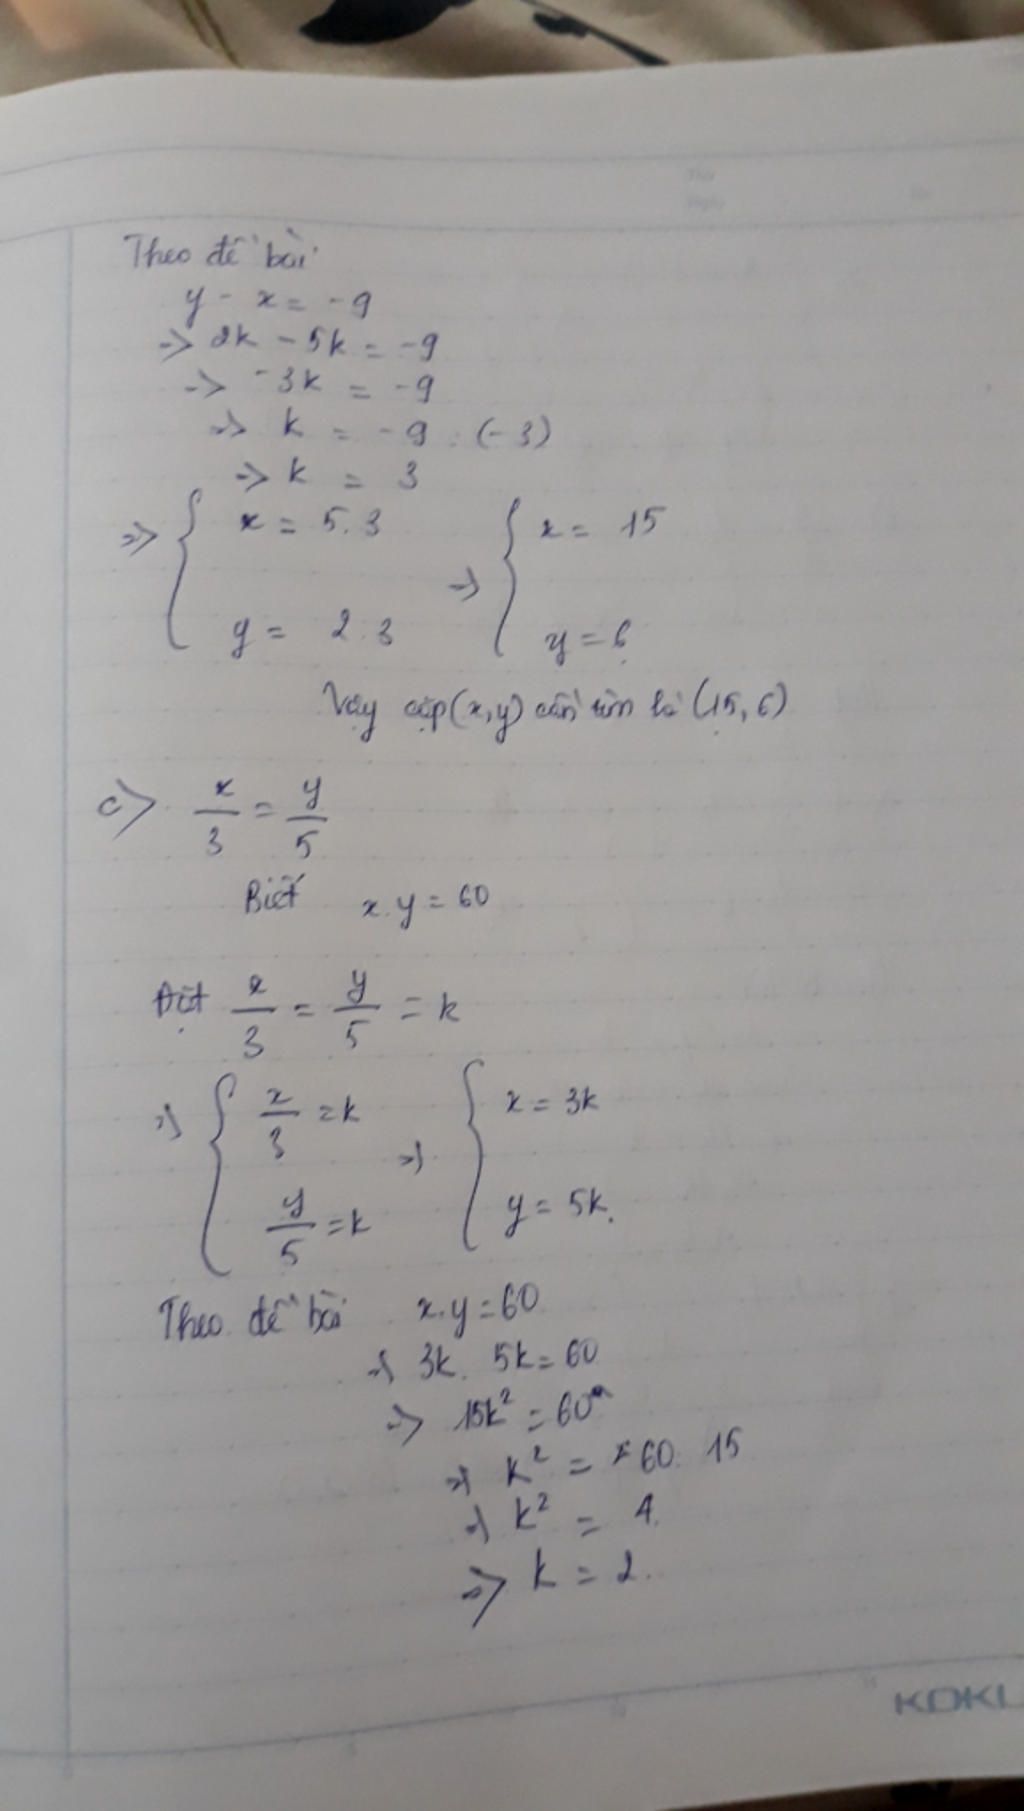 Theo đề bài
y - x = -9
=> 2k - 5k = -9
=> -3k = -9
=> k = -9 : (-3)
=> k = 3
=> { x = 5.3 => { x = 15
y = 2.3 y = 6
Vậy cặp (x,y) cần tìm là (15, 6)
c) x/3 = y/5
Biết x.y = 60
Đặt x/3 = y/5 = k
=> { x/3 = k => { x = 3k
y/5 = k y = 5k.
Theo đề bài x.y = 60
=> 3k. 5k = 60
=> 15k² = 60
=> k² = 60: 15
=> k² = 4.
=> k = 2.